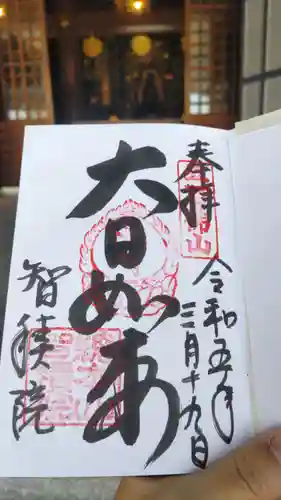 奉拝
令和五年
三月十九日
大日如来
智積院